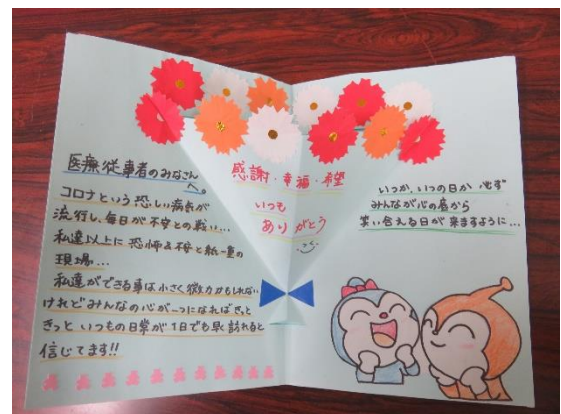 医療従事者のみなさんへ。
コロナという恐しい病気が
流行し、毎日が不安との戦い…
私達以上に恐怖と不安と紙一重の
現場…
私達ができる事は小さく微力かもしれない
けれどみんなの心が一つになればきっと
きっといつもの日常が1日でも早く訪れると
信じてます!!
感謝・幸福・希望
いつも
ありがとう
いつか、いつの日か必ず
みんなが心の底から
笑い合える日が来ますように…